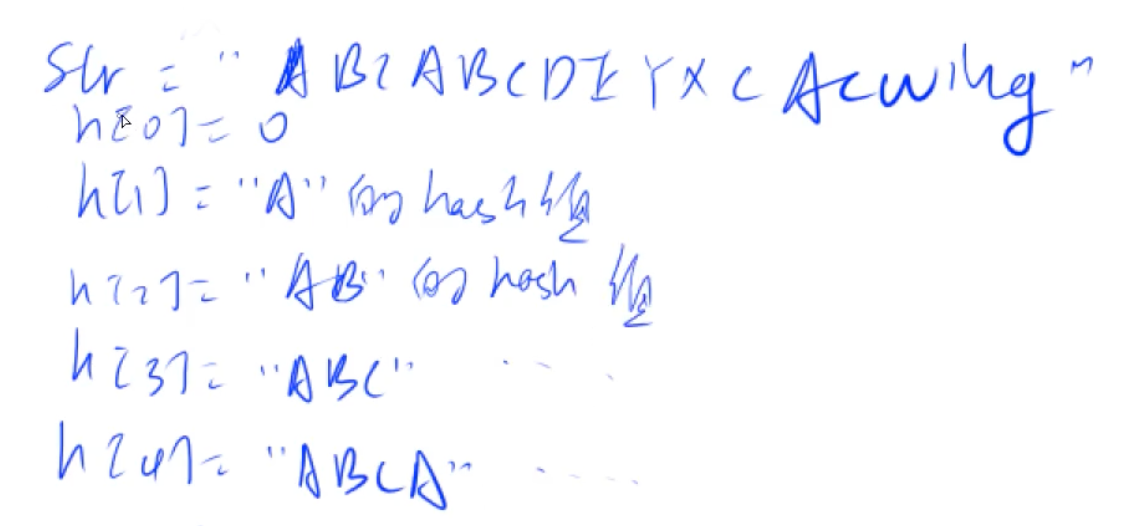 Str = "ABCABCDEYXCAcwing"
h[0] = 0
h[1] = "A" 的 hash 值
h[2] = "AB" 的 hash 值
h[3] = "ABC" ....
h[4] = "ABCA" .....